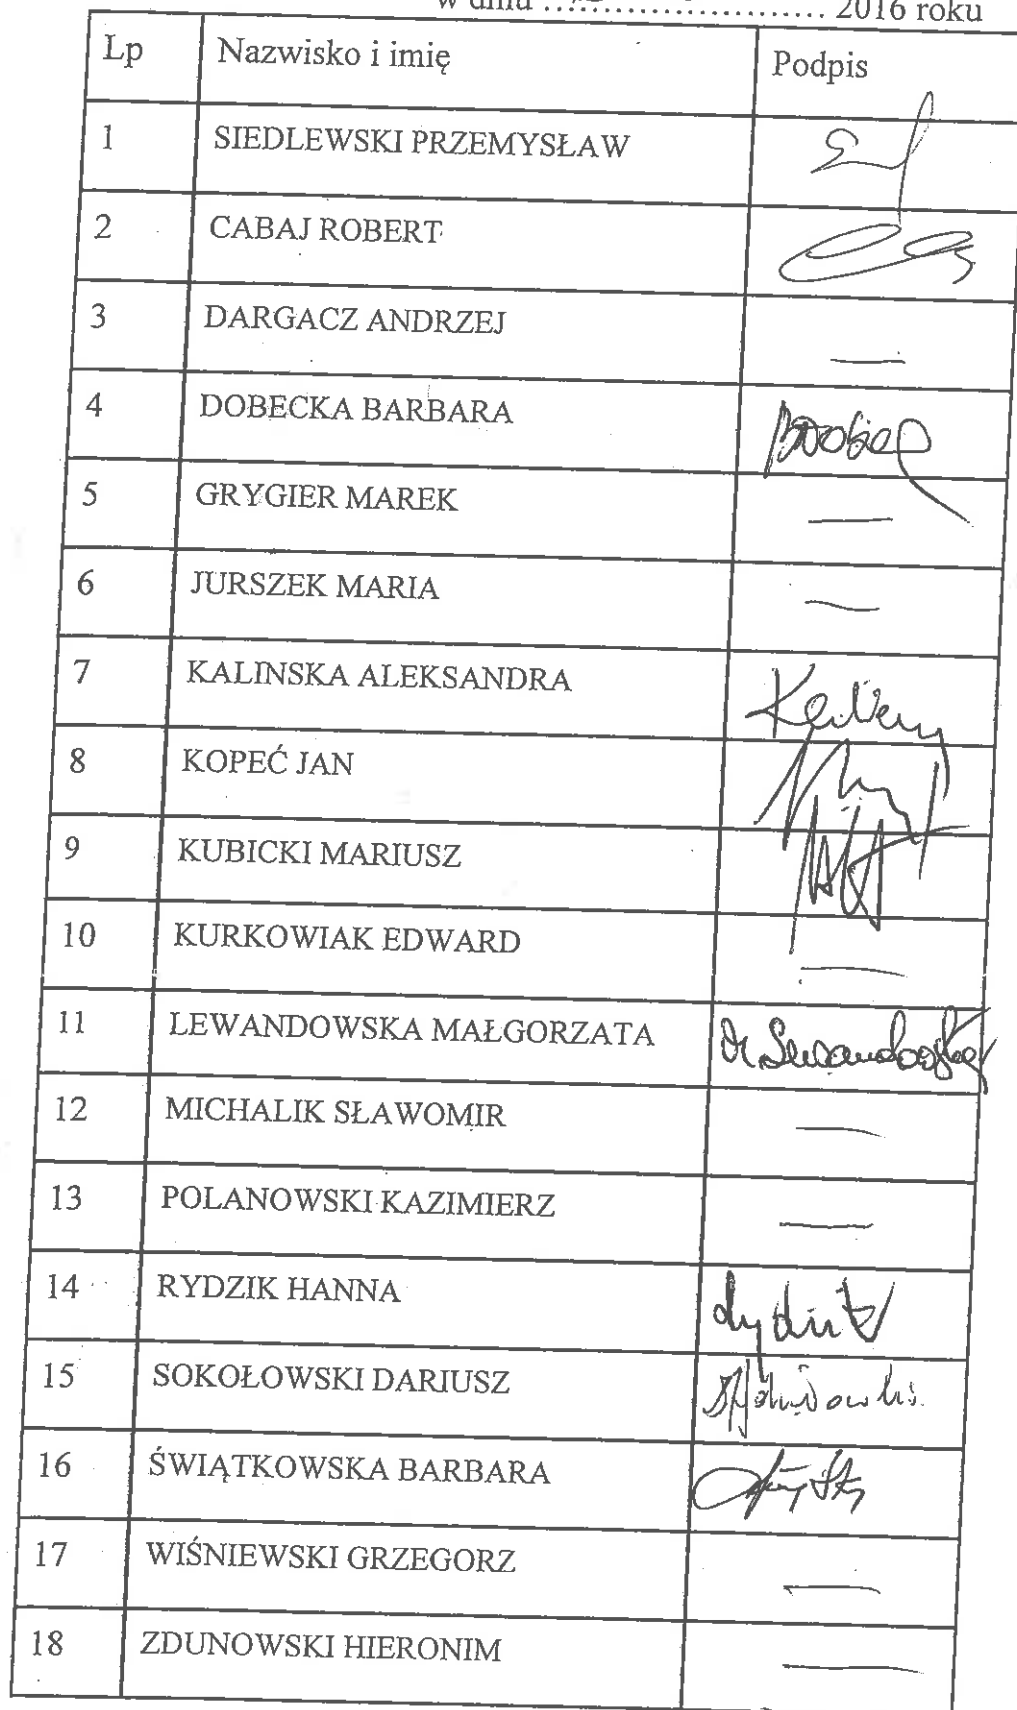 w dniu ........................ 2016 roku
Lp Nazwisko i imię Podpis
1 SIEDLEWSKI PRZEMYSŁAW
2 CABAJ ROBERT
3 DARGACZ ANDRZEJ —
4 DOBECKA BARBARA
5 GRYGIER MAREK —
6 JURSZEK MARIA —
7 KALINSKA ALEKSANDRA
8 KOPEĆ JAN
9 KUBICKI MARIUSZ
10 KURKOWIAK EDWARD —
11 LEWANDOWSKA MAŁGORZATA
12 MICHALIK SŁAWOMIR —
13 POLANOWSKI KAZIMIERZ —
14 RYDZIK HANNA
15 SOKOŁOWSKI DARIUSZ
16 ŚWIĄTKOWSKA BARBARA
17 WIŚNIEWSKI GRZEGORZ —
18 ZDUNOWSKI HIERONIM —